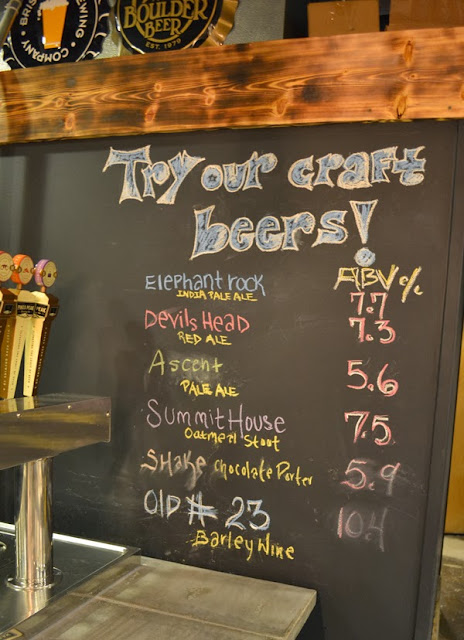 BREWING
COMPANY
BOULDER
BEER
EST. 1979
Try our craft
beers!
ABV %
Elephant rock 7.7
INDIA PALE ALE
Devils Head 7.3
RED ALE
Ascent 5.6
PALE ALE
Summit House 7.5
Oatmeal Stout
Shake chocolate Porter 5.9
Old # 23 10.4
Barley Wine